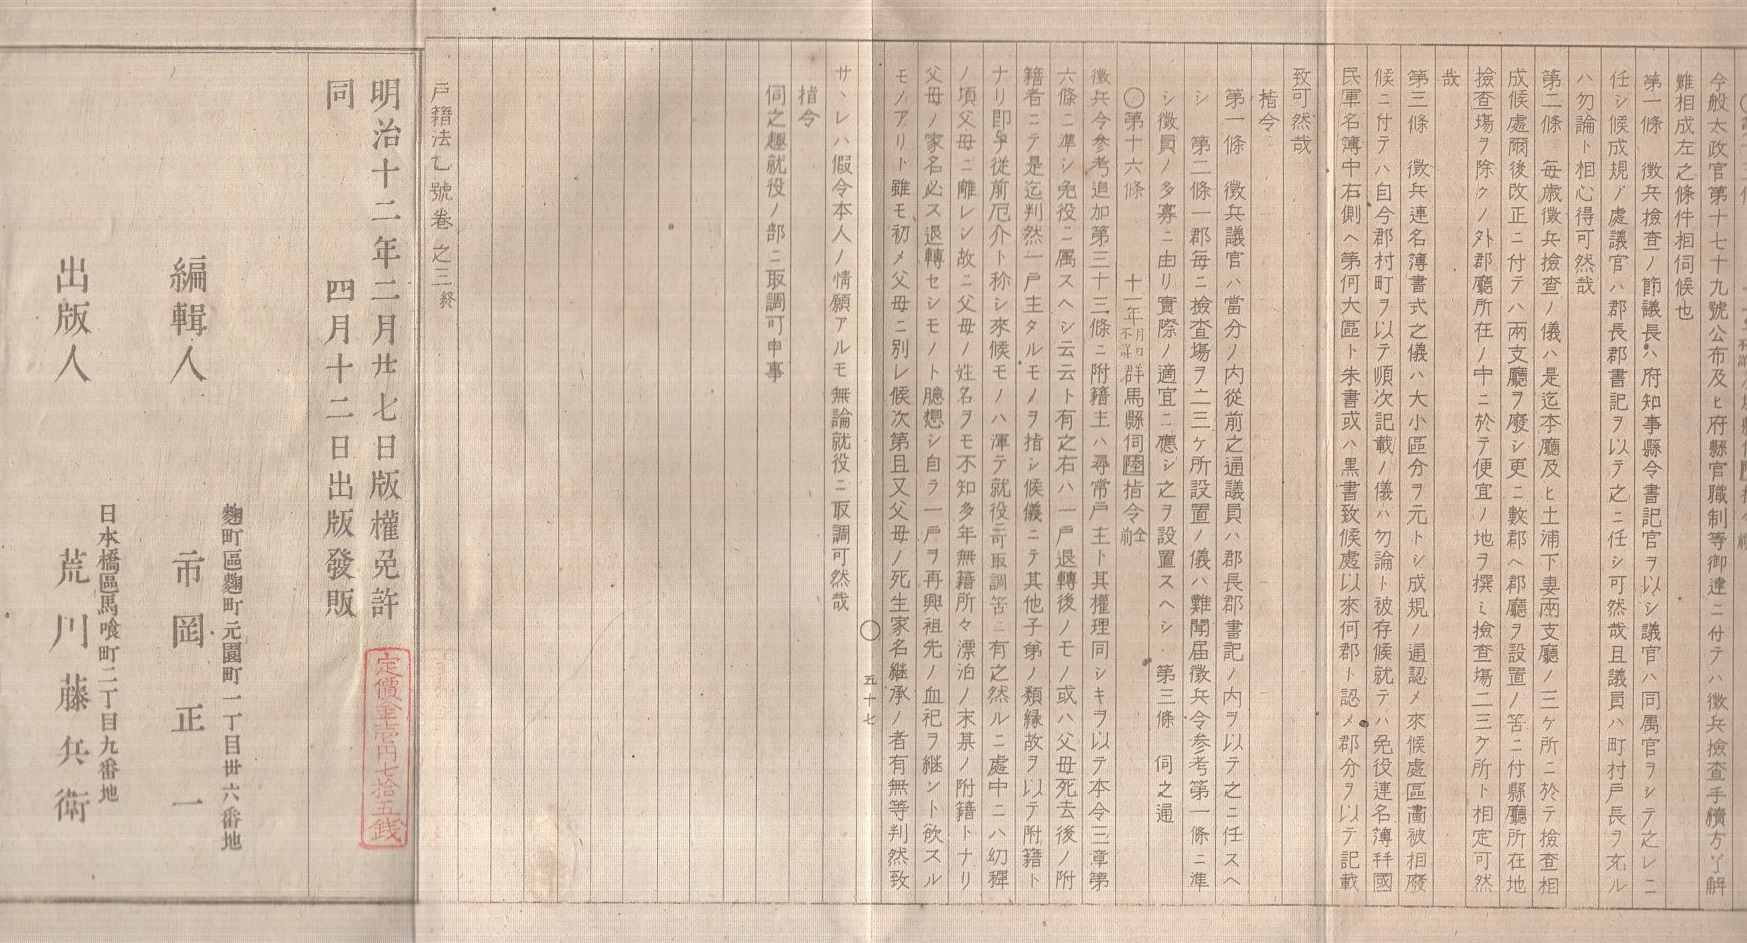 今般太政官第十七十九號公布及ヒ府縣官職制等御達ニ付テハ徴兵撿査手續方了解
難相成左之條件相伺候也
第一條　徴兵撿査ノ節議長ハ府知事縣令書記官ヲ以シ議官ハ同属官ヲシテ之レニ
任シ候成規ノ處議官ハ郡長郡書記ヲ以テ之ニ任シ可然哉且議員ハ町村戸長ヲ充ル
ハ勿論ト相心得可然哉
第二條　毎歳徴兵撿査ノ儀ハ是迄本廳及ヒ土浦下妻兩支廳ノ三ケ所ニ於テ撿査相
成候處爾後改正ニ付テハ兩支廳ヲ廢シ更ニ數郡ヘ郡廳ヲ設置ノ筈ニ付縣廳所在地
撿査塲ヲ除クノ外郡廳所在ノ中ニ於テ便宜ノ地ヲ撰ミ撿査塲二三ケ所ト相定可然
哉
第三條　徴兵連名簿書式之儀ハ大小區分ヲ元トシ成規ノ通認メ來候處區畫被相廢
候ニ付テハ自今郡村町ヲ以テ順次記載ノ儀ハ勿論ト被存候就テハ免役連名簿幷國
民軍名簿中右側ヘ第何大區ト朱書或ハ黒書致候處以來何郡ト認メ郡分ヲ以テ記載
致可然哉
指令
第一條　徴兵議官ハ當分ノ内從前之通議員ハ郡長郡書記ノ内ヲ以テ之ニ任スヘ
シ　第二條一郡毎ニ撿査塲ヲ二三ケ所設置ノ儀ハ難聞届徴兵令参考第一條ニ準
シ徴員ノ多寡ニ由リ實際ノ適宜ニ應シ之ヲ設置スヘシ　第三條　伺之通
〇第十六條　十一年月日不詳群馬縣伺陸指令仝前
徴兵令参考追加第三十三條ニ附籍主ハ尋常戸主ト其權理同シキヲ以テ本令三章第
六條ニ準シ免役ニ属スヘシ云云ト有之右ハ一戸退轉後ノモノ或ハ父母死去後ノ附
籍者ニテ是迄判然一戸主タルモノヲ指シ候儀ニテ其他子弟ノ類縁故ヲ以テ附籍ト
ナリ即チ從前厄介ト称シ來候モノハ渾テ就役ニ可取調筈ニ有之然ルニ處中ニハ幼穉
ノ頃父母ニ離レシ故ニ父母ノ姓名ヲモ不知多年無籍所々漂泊ノ末某ノ附籍トナリ
父母ノ家名必ス退轉セシモノト臆想シ自ラ一戸ヲ再興祖先ノ血祀ヲ継ント飲スル
モノアリト雖モ初メ父母ニ別レ候次第且又父母ノ死生家名継承ノ者有無等判然致
サヽレハ假令本人ノ情願アルモ無論就役ニ取調可然哉
指令
伺之趣就役ノ部ニ取調可申事
〇
五十七
戸籍法乙號卷之三終
明治十二年二月廿七日版權免許
同　四月十二日出版發販
定價金壱円七拾五銭
麴町區麴町元園町一丁目卅六番地
編輯人　市岡正一
日本橋區馬喰町二丁目九番地
出版人　荒川藤兵衛